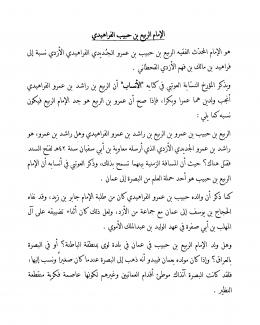 الإمام الربيع بن حبيب الفراهيدي
هو الإمام المحدّث الفقيه الربيع بن حبيب بن عمرو الجُديدي الفراهيدي الأزدي نسبة إلى
فراهيد بن مالك بن فهم الأزدي القحطاني .
ويذكر المؤرخ النسّابة العوتبي في كتابه "الأنساب" أن الربيع بن راشد بن عمرو الفراهيدي
أنجب ولدين هما عمرو وبكر، فإذا صح أن عمرو بن الربيع هو جد الربيع فيكون
نسبه كما يلي :
الربيع بن حبيب بن عمرو بن الربيع بن راشد بن عمرو الفراهيدي وهل راشد بن عمرو، هو
راشد بن عمرو الجديدي الأزدي الذي أرسله معاوية بن أبي سفيان سنة ٤٢هـ لفتح السند
فقتل هناك؟ حيث أن المسافة الزمنية بينهما تسمح بذلك، وذكر العوتبي في أنسابه أن الإمام
الربيع بن حبيب هو أحد حملة العلم من البصرة إلى عمان .
كما ذكر أن والده حبيب بن عمرو كان من طلبة الإمام جابر بن زيد، وقد نفاه
الحجاج بن يوسف إلى عمان مع جماعة من الأزد، ولعل ذلك كان أثناء تضييقه على آل
المهلب بن أبي صفرة في عهد الوليد بن عبدالملك الأموي .
وهل ولد الإمام الربيع بن حبيب في عمان في بلدة لوى بمنطقة الباطنة؟ أو في البصرة
بالعراق؟ وإذا كان مولده بعمان فيبدو أنه ذهب إلى البصرة عندما كان صغيراً ونسب إليها،
فقد كانت البصرة آنذاك موطئ أقدام العمانيين وغيرهم لكونها عاصمة فكرية منقطعة
النظير .